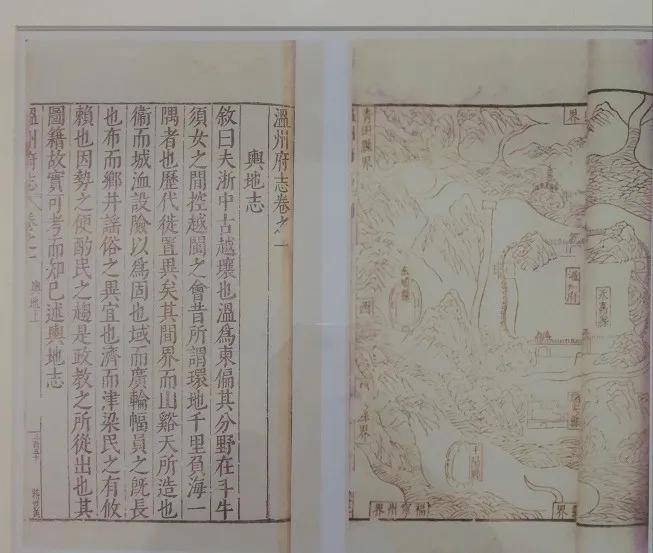 溫州府志卷之一
輿地志
敘曰夫浙中古越壤也溫爲東偏其分野在斗牛
須女之間控越閩之會昔所謂環地千里負海一
隅者也歷代徙置異矣其間界而山谿天所造也
衞而城洫設險以爲固也域而廣輪幅員之旣長
也布而鄉井謠俗之異宜也濟而津梁民之有攸
賴也因勢之便酌民之趨是政教之所從出也其
圖籍故實可考而知已述輿地志
溫州府志
卷之一
輿地上
界
青田縣界
永嘉縣
西
界
福寧州界
界